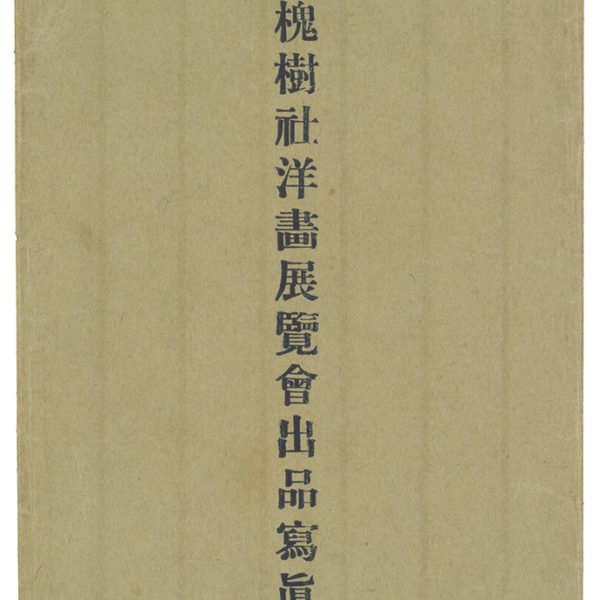 槐樹社洋畵展覽會出品寫眞